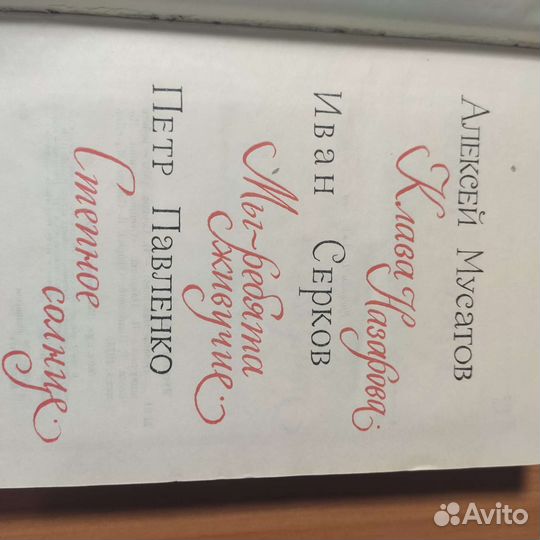 Алексей Мусатов
Клава Назарова
Иван Серков
Мы-ребята
живучие
Петр Павленко
Степное
солнце
Avito